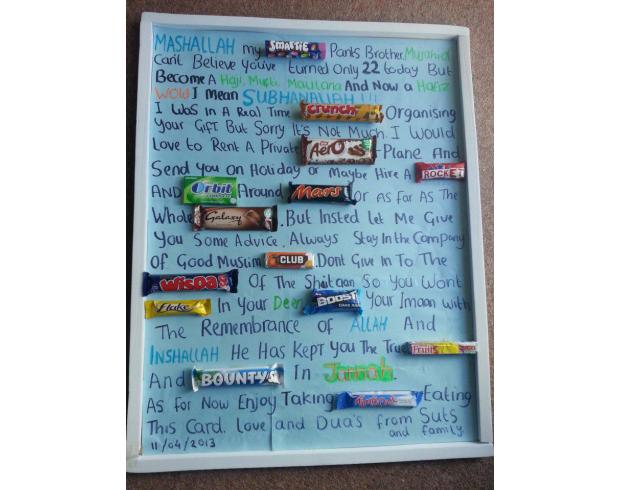 MASHALLAH my SMARTIE Pants Brother Mujahid
Can't Believe You've turned Only 22 today But
Become A Haji, Mufti, Maulana And Now a Hafiz
WOW I mean SUBHANALLAH !!!
I Was In A Real Time Crunch Organising
Your Gift But Sorry It's Not Much. I Would
Love to Rent A Private Aero-Plane And
Send You on Holiday or Maybe Hire A ROCKET
AND Orbit Around Mars Or As Far As The
Whole Galaxy. But Insted let Me Give
You Some Advice. Always Stay In the Company
Of Good Muslim CLUB. Dont Give In To The
Wispas Of The Shaitaan So You Wont
Flake In Your Deen BOOST Your Imaan with
The Remembrance of ALLAH And
INSHALLAH He Has Kept You The True Fruits
And BOUNTYS In Jannah.
As for Now Enjoy Taking Eating
This Card. Love and Dua's from Suts
and family
11/04/2013